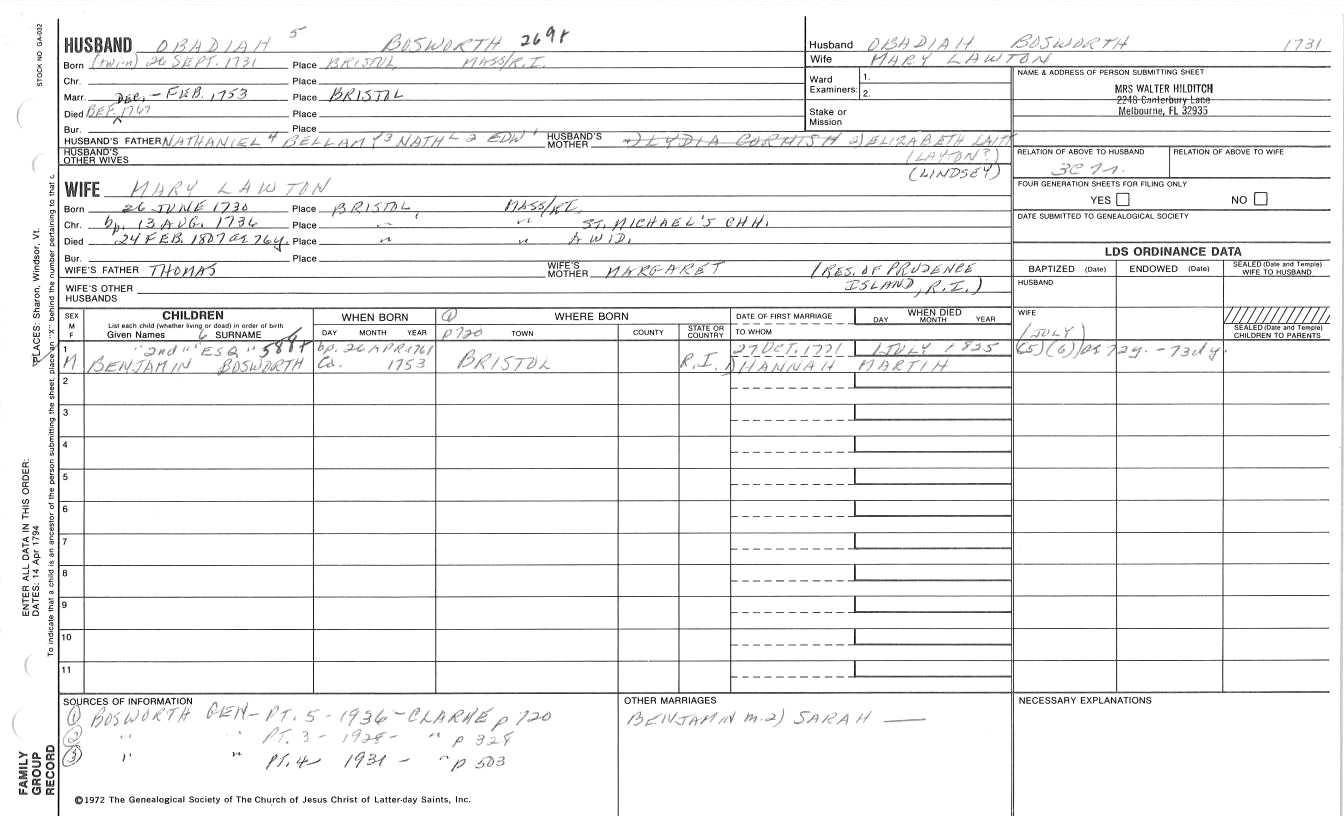 STOCK NO GA-032
HUSBAND OBADIAH 5 BOSWORTH 269r
Born (twin) 26 SEPT. 1731 Place BRISTOL MASS/R.I.
Chr. Place
Marr. DEC. - FEB. 1753 Place BRISTOL
Died BEF. 1767 Place
Bur. Place
HUSBAND'S FATHER NATHANIEL 4 BELLAMY 3 NATH'L 2 EDW 1 HUSBAND'S MOTHER 1) LYDIA CORNISH 2) ELIZABETH
HUSBAND'S OTHER WIVES
(LAYTON?)
(LINDSEY)
Husband OBADIAH BOSWORTH 1731
Wife MARY LAWTON
Ward 1.
Examiners: 2.
Stake or Mission
NAME & ADDRESS OF PERSON SUBMITTING SHEET
MRS WALTER HILDITCH
2248 Canterbury Lane
Melbourne, FL 32935
RELATION OF ABOVE TO HUSBAND RELATION OF ABOVE TO WIFE
FOUR GENERATION SHEETS FOR FILING ONLY
YES NO
DATE SUBMITTED TO GENEALOGICAL SOCIETY
WIFE MARY LAWTON
Born 26 JUNE 1730 Place BRISTOL, MASS/RI.
Chr. bp. 13 AUG. 1736 Place " " ST. MICHAEL'S CHH.
Died 24 FEB. 1807 ae 76y. Place " " A WID.
Bur. Place
WIFE'S FATHER THOMAS WIFE'S MOTHER MARGARET (RES. OF PRUDENCE
ISLAND, R.I.)
WIFE'S OTHER HUSBANDS
LDS ORDINANCE DATA
BAPTIZED (Date) ENDOWED (Date) SEALED (Date and Temple) WIFE TO HUSBAND
HUSBAND
WIFE
SEALED (Date and Temple) CHILDREN TO PARENTS
SEX M F CHILDREN
List each child (whether living or dead) in order of birth
Given Names 6 SURNAME
WHEN BORN
DAY MONTH YEAR
① WHERE BORN
p720 TOWN COUNTY STATE OR COUNTRY
DATE OF FIRST MARRIAGE
TO WHOM
WHEN DIED
DAY MONTH YEAR
1 "2nd" "ESQ" 588r bp. 26 APR 1761 27 OCT. 1771 1 JULY 1825 (1 JULY) (5) (6) ae 72y. - 73dy.
M BENJAMIN BOSWORTH Ca. 1753 BRISTOL R.I. 1) HANNAH MARTIN
2
3
4
5
6
7
8
9
10
11
SOURCES OF INFORMATION
① BOSWORTH GEN - PT. 5 - 1936 - CLARKE p 720
② " " PT. 3 - 1928 - " p 328
③ " " PT. 4 - 1931 - " p 503
OTHER MARRIAGES
BENJAMIN m. 2) SARAH —
NECESSARY EXPLANATIONS
©1972 The Genealogical Society of The Church of Jesus Christ of Latter-day Saints, Inc.
FAMILY GROUP RECORD
ENTER ALL DATA IN THIS ORDER:
DATES: 14 Apr 1794
PLACES: Sharon, Windsor, Vt.
To indicate that a child is an ancestor of the person submitting the sheet, place an "X" behind the number pertaining to that c